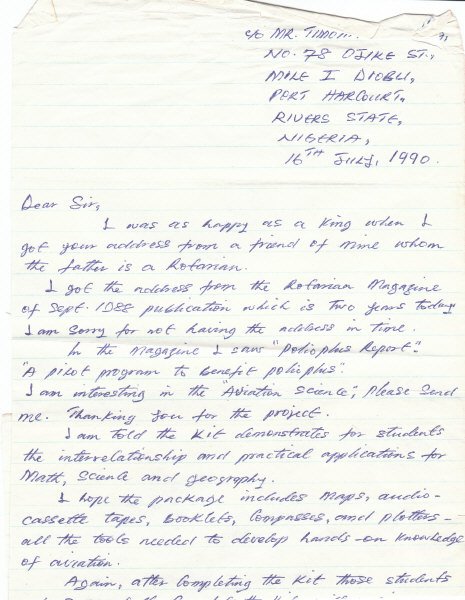 c/o MR. TIMON.
NO. 78 OJIKE ST.,
MILE I DIOBU,
PORT HARCOURT,
RIVERS STATE,
NIGERIA,
16TH JULY, 1990.
Dear Sir,
I was as happy as a King when I
got your address from a friend of mine whom
the father is a Rotarian.
I got the address from the Rotarian Magazine
of Sept. 1988 publication which is two years today
I am sorry for not having the address in time.
In the Magazine I saw "Polioplus Report".
"A pilot program to benefit polioplus".
I am interesting in the "Aviation Science", Please Send
me. Thanking you for the project.
I am told the Kit demonstrates for students
the interrelationship and practical applications for
Math, Science and geography.
I hope the package includes Maps, audio-
cassette tapes, Booklets, Compasses, and plotters -
all the tools needed to develop hands-on knowledge
of aviation.
Again, after completing the Kit those students